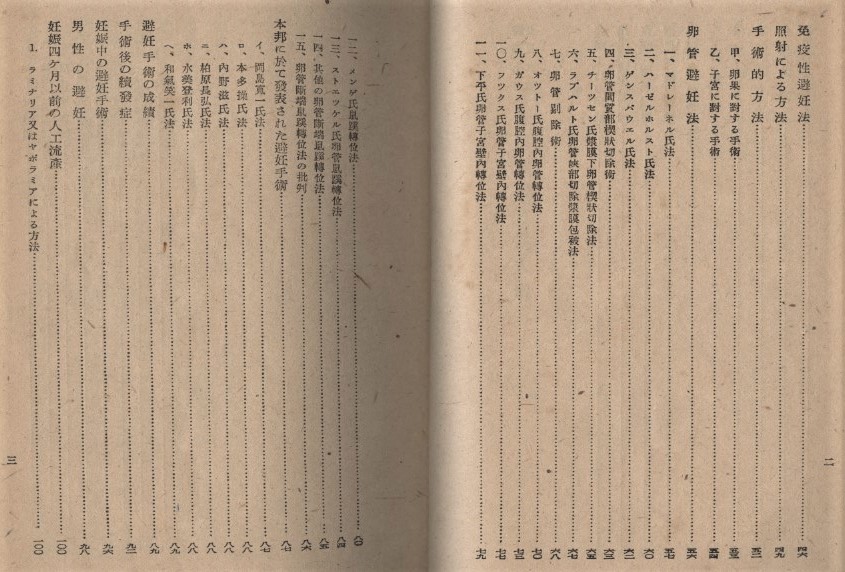 免疫性避妊法……四六
照射による方法……四九
手術的方法……五二
甲、卵巣に對する手術……五三
乙、子宮に對する手術……五四
卵管避妊法……五六
一、マドレーネル氏法……五七
二、ハーゼルホルスト氏法……六〇
三、ゲンスバウエル氏法……六二
四、卵管間質部楔狀切除術……六三
五、チーツセン氏漿膜下卵管楔狀切除法……六五
六、ラブハルト氏卵管峽部切除漿膜包被法……六七
七、卵管剔除術……六八
八、オツトー氏腹腔內卵管轉位法……七〇
九、ガウス氏腹腔內卵管轉位法……七三
一〇、フツクス氏卵管子宮壁內轉位法……七七
一一、下平氏卵管子宮壁內轉位法……七九
二
一二、メンゲ氏鼠蹊轉位法……八〇
一三、ストエツケル氏卵管鼠蹊轉位法……八四
一四、其他の卵管斷端鼠蹊轉位法……八五
一五、卵管斷端鼠蹊轉位法の批判……八六
本邦に於て發表された避妊手術……八七
イ、岡島寬一氏法……八七
ロ、本多操氏法……八八
ハ、內野滋氏法……八八
ニ、柏原長弘氏法……八八
ホ、永美登利氏法……八九
ヘ、和氣笑一氏法……八九
避妊手術の成績……八九
手術後の續發症……九二
妊娠中の避妊手術……九六
男性の避妊……九八
妊娠四ケ月以前の人工流產……一〇〇
1. ラミナリア又はヤポラミアによる方法……一〇〇
三